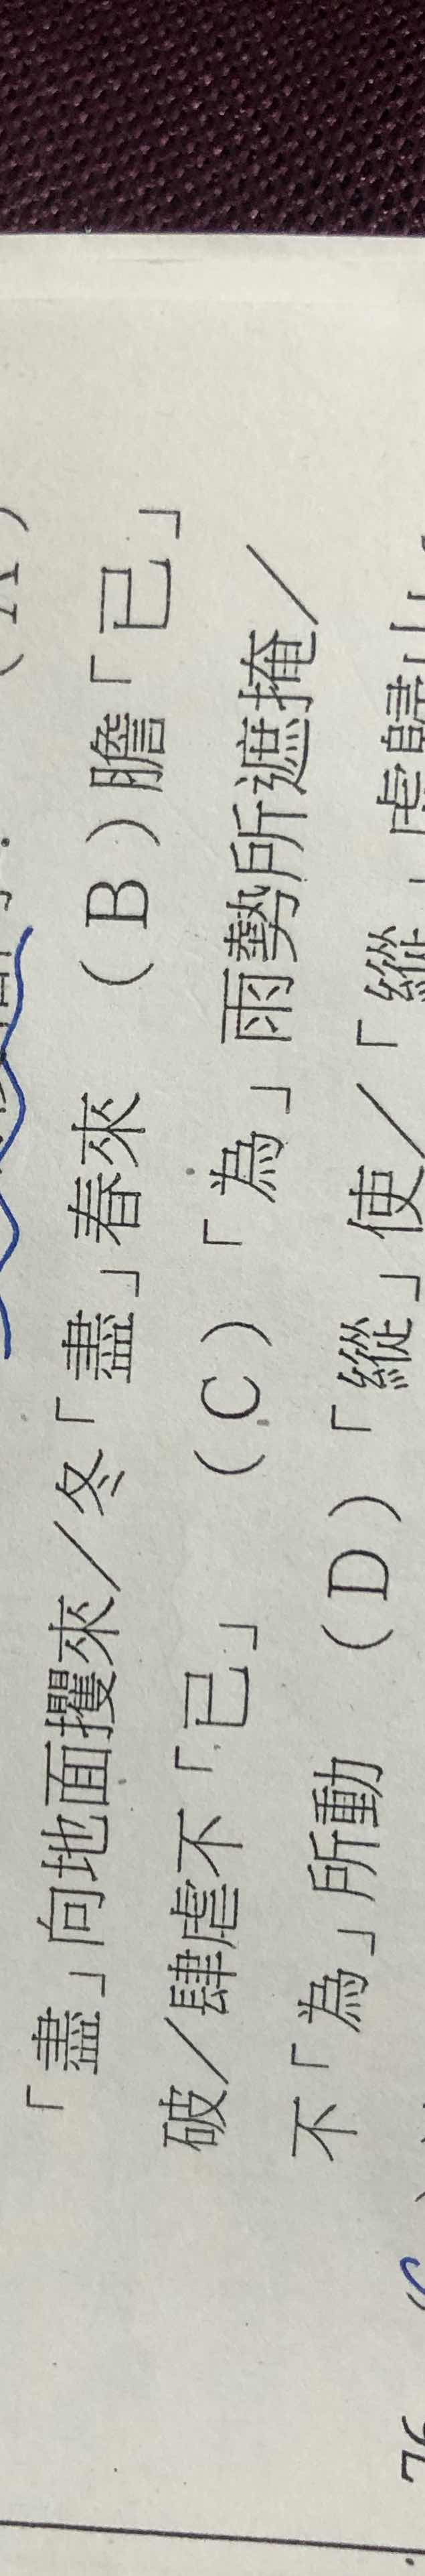 (A)
「盡」向地面攫來／冬「盡」春來　(B)膽「已」
破／肆虐不「已」　(C)「為」雨勢所遮掩／
不「為」所動　(D)「縱」使／「縱」虎歸山
76